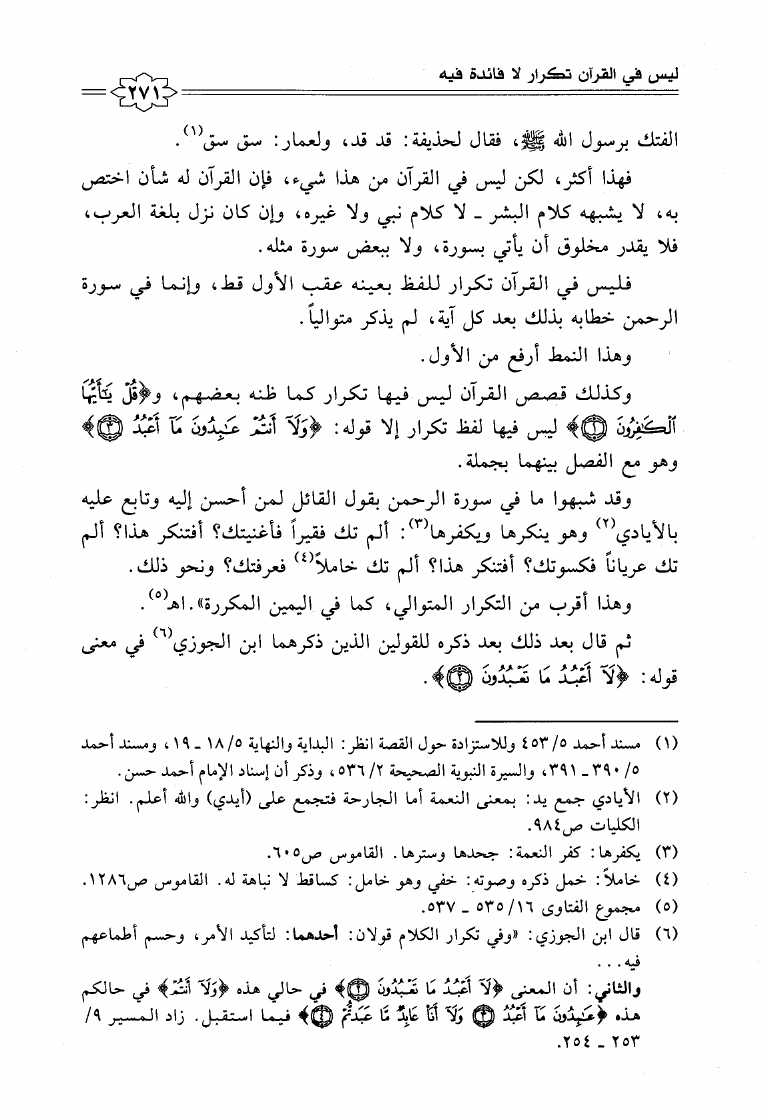 ليس في القرآن تكرار لا فائدة فيه
٢٧١
الفتك برسول الله ﷺ، فقال لحذيفة: قد قد، ولعمار: سق سق(١).
فهذا أكثر، لكن ليس في القرآن من هذا شيء، فإن القرآن له شأن اختص
به، لا يشبهه كلام البشر ـ لا كلام نبي ولا غيره، وإن كان نزل بلغة العرب،
فلا يقدر مخلوق أن يأتي بسورة، ولا ببعض سورة مثله.
فليس في القرآن تكرار للفظ بعينه عقب الأول قط، وإنما في سورة
الرحمن خطابه بذلك بعد كل آية، لم يذكر متوالياً.
وهذا النمط أرفع من الأول.
وكذلك قصص القرآن ليس فيها تكرار كما ظنه بعضهم، و﴿قُلْ يَٰٓأَيُّهَا
ٱلْكَٰفِرُونَ ١﴾ ليس فيها لفظ تكرار إلا قوله: ﴿وَلَآ أَنتُمْ عَٰبِدُونَ مَآ أَعْبُدُ ٣﴾
وهو مع الفصل بينهما بجملة.
وقد شبهوا ما في سورة الرحمن بقول القائل لمن أحسن إليه وتابع عليه
بالأيادي(٢) وهو ينكرها ويكفرها(٣): ألم تك فقيراً فأغنيتك؟ أفتنكر هذا؟ ألم
تك عرياناً فكسوتك؟ أفتنكر هذا؟ ألم تك خاملاً(٤) فعرفتك؟ ونحو ذلك.
وهذا أقرب من التكرار المتوالي، كما في اليمين المكررة». اهـ(٥).
ثم قال بعد ذلك بعد ذكره للقولين الذين ذكرهما ابن الجوزي(٦) في معنى
قوله: ﴿لَآ أَعْبُدُ مَا تَعْبُدُونَ ٢﴾.
(١) مسند أحمد ٤٥٣/٥ وللاستزادة حول القصة انظر: البداية والنهاية ١٨/٥ ـ ١٩، ومسند أحمد
٣٩٠/٥ ـ ٣٩١، والسيرة النبوية الصحيحة ٥٣٦/٢، وذكر أن إسناد الإمام أحمد حسن.
(٢) الأيادي جمع يد: بمعنى النعمة أما الجارحة فتجمع على (أيدي) والله أعلم. انظر:
الكليات ص٩٨٤.
(٣) يكفرها: كفر النعمة: جحدها وسترها. القاموس ص٦٠٥.
(٤) خاملاً: خمل ذكره وصوته: خفي وهو خامل: كساقط لا نباهة له. القاموس ص١٢٨٦.
(٥) مجموع الفتاوى ٥٣٥/١٦ ـ ٥٣٧.
(٦) قال ابن الجوزي: «وفي تكرار الكلام قولان: أحدهما: لتأكيد الأمر، وحسم أطماعهم
فيه...
والثاني: أن المعنى ﴿لَآ أَعْبُدُ مَا تَعْبُدُونَ ٢﴾ في حالي هذه ﴿وَلَآ أَنتُمْ﴾ في حالكم
هذه ﴿عَٰبِدُونَ مَآ أَعْبُدُ ٣ وَلَآ أَنَا۠ عَابِدٌ مَّا عَبَدتُّمْ ٤﴾ فيما استقبل. زاد المسير ٩/
٢٥٣ ـ ٢٥٤.